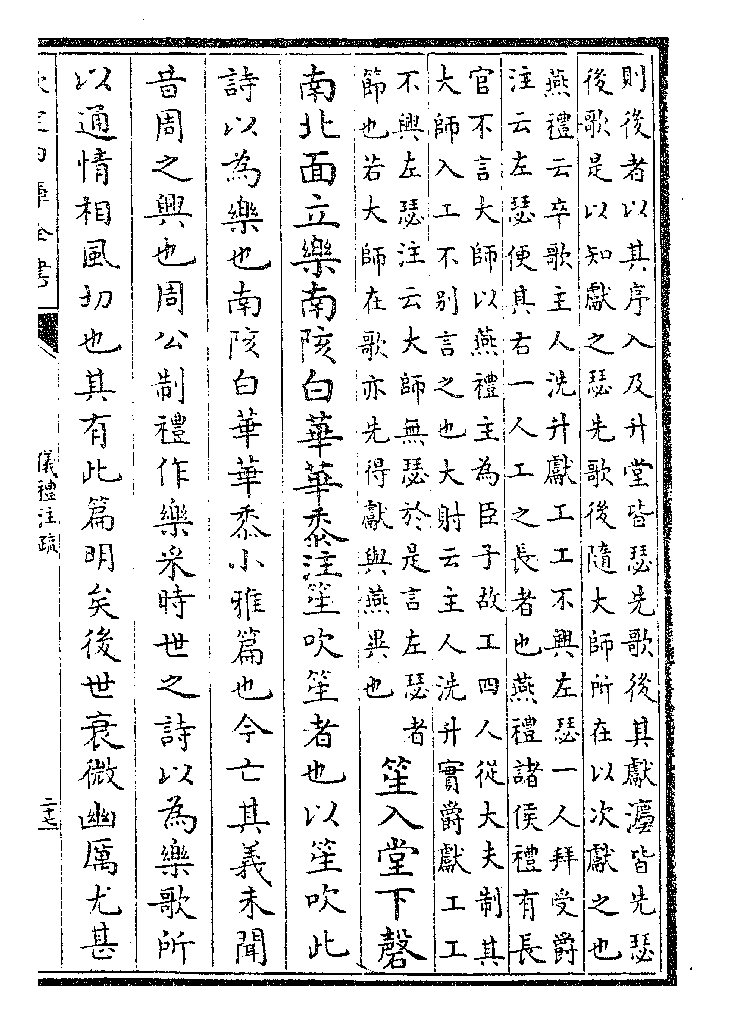 則後者以其序入及升堂皆瑟先歌後其獻灋皆先瑟
後歌是以知獻之瑟先歌後隨大師所在以次獻之也
燕禮云卒歌主人洗升獻工工不興左瑟一人拜受爵
注云左瑟便其右一人工之長者也燕禮諸侯禮有長
官不言大師以燕禮主為臣子故工四人從大夫制其
大師入工不別言之也大射云主人洗升實爵獻工工
不興左瑟注云大師無瑟於是言左瑟者
節也若大師在歌亦先得獻與燕異也
笙入堂下磬
南北面立樂南陔白華華黍注笙吹笙者也以笙吹此
詩以為樂也南陔白華華黍小雅篇也今亡其義未聞
昔周之興也周公制禮作樂采時世之詩以為樂歌所
以通情相風切也其有此篇明矣後世衰微幽厲尤甚
欽定四庫全書
儀禮注疏